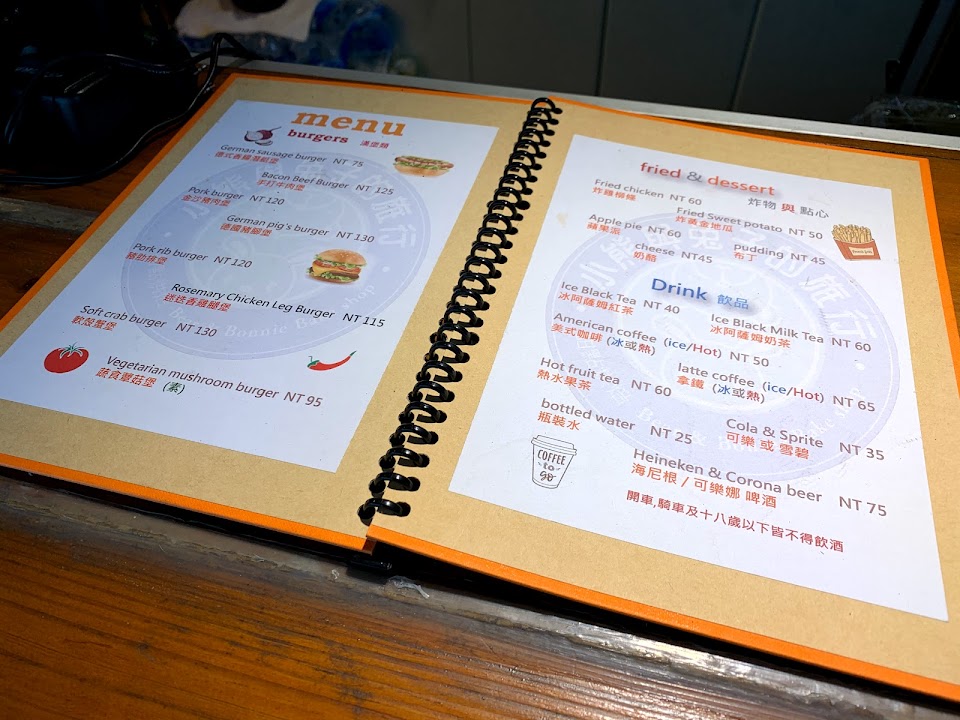 menu
burgers 漢堡類
German sausage burger NT 75
德式香腸潛艇堡
Bacon Beef Burger NT 125
手打牛肉堡
Pork burger NT 120
金沙豬肉堡
German pig's burger NT 130
德國豬腳堡
Pork rib burger NT 120
豬肋排堡
Rosemary Chicken Leg Burger NT 115
迷迭香雞腿堡
Soft crab burger NT 130
軟殼蟹堡
Vegetarian mushroom burger NT 95
蔬食蘑菇堡 (素)
fried & dessert
炸物 與 點心
Fried chicken NT 60
炸雞柳條
Fried Sweet potato NT 50
炸黃金地瓜
Apple pie NT 60
蘋果派
cheese NT45
奶酪
pudding NT 45
布丁
Drink 飲品
Ice Black Tea NT 40
冰阿薩姆紅茶
Ice Black Milk Tea NT 60
冰阿薩姆奶茶
American coffee (ice/Hot) NT 50
美式咖啡 (冰或熱)
latte coffee (ice/Hot) NT 65
拿鐵 (冰或熱)
Hot fruit tea NT 60
熱水果茶
bottled water NT 25
瓶裝水
Cola & Sprite NT 35
可樂 或 雪碧
COFFEE
to
go
Heineken & Corona beer NT 75
海尼根 / 可樂娜 啤酒
開車,騎車及十八歲以下皆不得飲酒